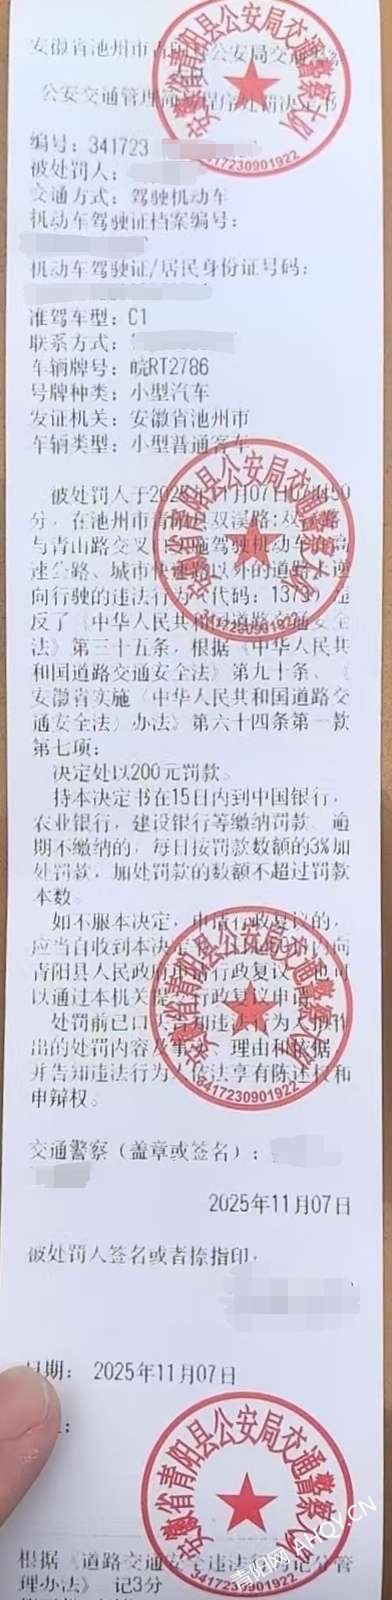 安徽省池州市青阳县公安局交通警察
公安交通管理简易程序处罚决定书
编号：341723
被处罚人：
交通方式：驾驶机动车
机动车驾驶证档案编号：
机动车驾驶证/居民身份证号码：
准驾车型：C1
联系方式：
车辆牌号：皖RT2786
号牌种类：小型汽车
发证机关：安徽省池州市
车辆类型：小型普通客车
被处罚人于2025年11月07日07时50
分，在池州市青阳县双溪路:双溪路
与青山路交叉口实施驾驶机动车在高
速公路、城市快速路以外的道路上逆
向行驶的违法行为（代码：1373）违
反了《中华人民共和国道路交通安全
法》第三十五条，根据《中华人民共
和国道路交通安全法》第九十条、《
安徽省实施〈中华人民共和国道路交
通安全法〉办法》第六十四条第一款
第七项：
决定处以200元罚款。
持本决定书在15日内到中国银行，
农业银行，建设银行等缴纳罚款。逾
期不缴纳的，每日按罚款数额的3%加
处罚款，加处罚款的数额不超过罚款
本数。
如不服本决定，申请行政复议的，
应当自收到本决定
向
青阳县人民政府申请行政复议，也可
以通过本机关提交行政复议申请。
处罚前已口头告知违法行为人拟作
出的处罚内容及事实、理由和依据，
并告知违法行为人依法享有陈述权和
申辩权。
交通警察（盖章或签名）：
2025年11月07日
被处罚人签名或者捺指印，
日期： 2025年11月07日
根据《道路交通安全违法行为记分管
理办法》 记3分
安徽省青阳县公安局交通警察大队
3417230901922
安徽省青阳县公安局交通警察大队
3417230901922
安徽省青阳县公安局交通警察大队
3417230901922
安徽省青阳县公安局交通警察大队
青阳网 AHQY.CN